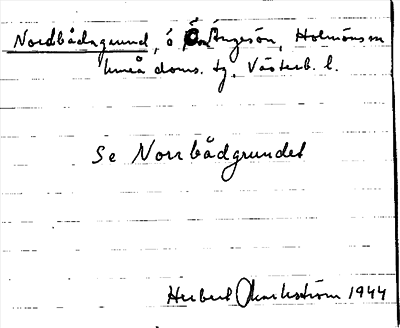 Nordbådagrund, ö Ö Ängesön, Holmöns sn
Umeå doms. tg, Västerb. l.
Se Norrbådgrundet
Herbert Markström 1944